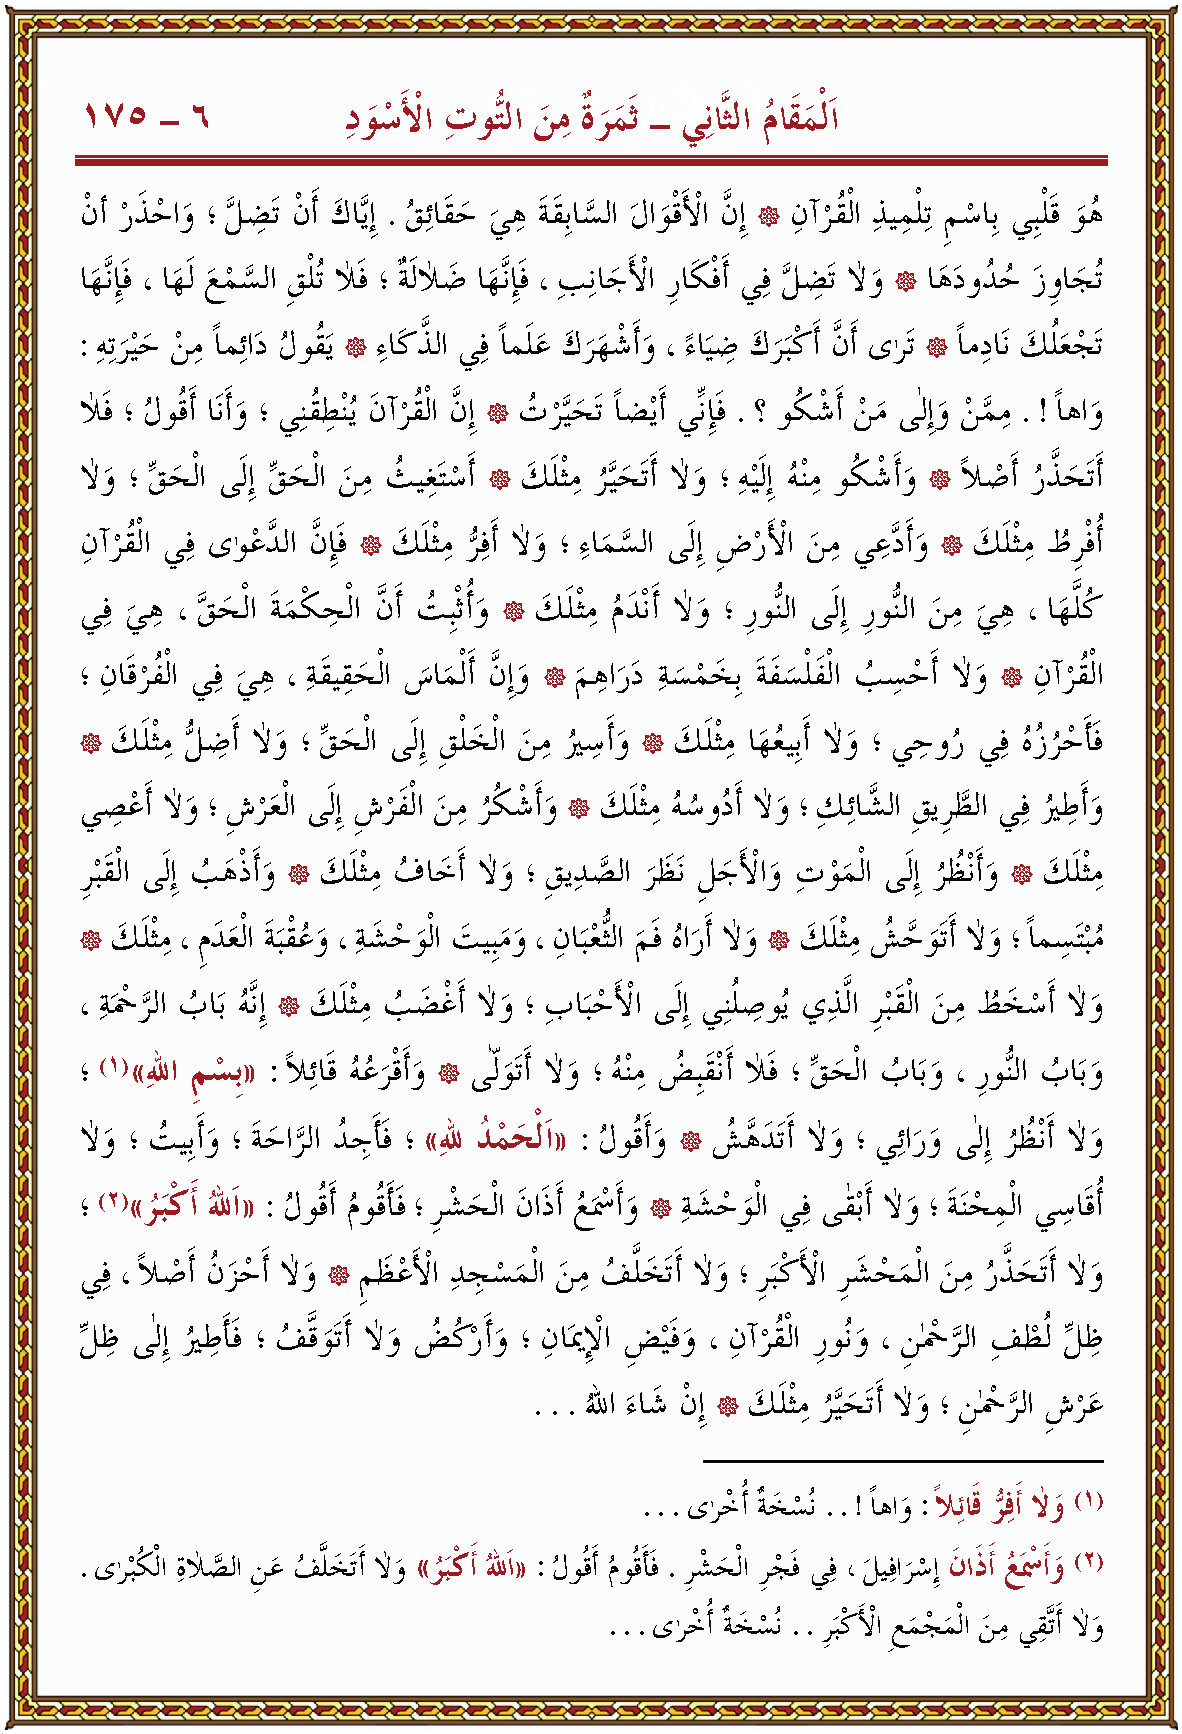 اَلْمَقَامُ الثَّانِي ــ ثَمَرَةٌ مِنَ التُّوتِ الْأَسْوَدِ ٦ ــ ١٧٥
هُوَ قَلْبِي بِاسْمِ تِلْمِيذِ الْقُرْآنِ ۞ إِنَّ الْأَقْوَالَ السَّابِقَةَ هِيَ حَقَائِقُ . إِيَّاكَ أَنْ تَضِلَّ ؛ وَاحْذَرْ أنْ
تُجَاوِزَ حُدُودَهَا ۞ وَلاٰ تَضِلَّ فِي أَفْكَارِ الْأَجَانِبِ ، فَإِنَّهَا ضَلاٰلَةٌ ؛ فَلاٰ تُلْقِ السَّمْعَ لَهَا ، فَإِنَّهَا
تَجْعَلُكَ نَادِماً ۞ تَرٰى أَنَّ أَكْبَرَكَ ضِيَاءً ، وَأَشْهَرَكَ عَلَماً فِي الذَّكَاءِ ۞ يَقُولُ دَائِماً مِنْ حَيْرَتِهِ :
وَاهاً ! . مِمَّنْ وَإِلٰى مَنْ أَشْكُو ؟ . فَإِنِّي أَيْضاً تَحَيَّرْتُ ۞ إِنَّ الْقُرْآنَ يُنْطِقُنِي ؛ وَأَنَا أَقُولُ ؛ فَلاٰ
أَتَحَذَّرُ أَصْلاً ۞ وَأَشْكُو مِنْهُ إِلَيْهِ ؛ وَلاٰ أَتَحَيَّرُ مِثْلَكَ ۞ أَسْتَغِيثُ مِنَ الْحَقِّ إِلَى الْحَقِّ ؛ وَلاٰ
أُفْرِطُ مِثْلَكَ ۞ وَأَدَّعِي مِنَ الْأَرْضِ إِلَى السَّمَاءِ ؛ وَلاٰ أَفِرُّ مِثْلَكَ ۞ فَإِنَّ الدَّعْوٰى فِي الْقُرْآنِ
كُلَّهَا ، هِيَ مِنَ النُّورِ إِلَى النُّورِ ؛ وَلاٰ أَنْدَمُ مِثْلَكَ ۞ وَأُثْبِتُ أَنَّ الْحِكْمَةَ الْحَقَّ ، هِيَ فِي
الْقُرْآنِ ۞ وَلاٰ أَحْسِبُ الْفَلْسَفَةَ بِخَمْسَةِ دَرَاهِمَ ۞ وَإِنَّ أَلْمَاسَ الْحَقِيقَةِ ، هِيَ فِي الْفُرْقَانِ ؛
فَأَحْرُزُهُ فِي رُوحِي ؛ وَلاٰ أَبِيعُهَا مِثْلَكَ ۞ وَأَسِيرُ مِنَ الْخَلْقِ إِلَى الْحَقِّ ؛ وَلاٰ أَضِلُّ مِثْلَكَ ۞
وَأَطِيرُ فِي الطَّرِيقِ الشَّائِكِ ؛ وَلاٰ أَدُوسُهُ مِثْلَكَ ۞ وَأَشْكُرُ مِنَ الْفَرْشِ إِلَى الْعَرْشِ ؛ وَلاٰ أَعْصِي
مِثْلَكَ ۞ وَأَنْظُرُ إِلَى الْمَوْتِ وَالْأَجَلِ نَظَرَ الصَّدِيقِ ؛ وَلاٰ أَخَافُ مِثْلَكَ ۞ وَأَذْهَبُ إِلَى الْقَبْرِ
مُبْتَسِماً ؛ وَلاٰ أَتَوَحَّشُ مِثْلَكَ ۞ وَلاٰ أَرَاهُ فَمَ الثُّعْبَانِ ، وَمَبِيتَ الْوَحْشَةِ ، وَعُقْبَةَ الْعَدَمِ ، مِثْلَكَ ۞
وَلاٰ أَسْخَطُ مِنَ الْقَبْرِ الَّذِي يُوصِلُنِي إِلَى الْأَحْبَابِ ؛ وَلاٰ أَغْضَبُ مِثْلَكَ ۞ إِنَّهُ بَابُ الرَّحْمَةِ ،
وَبَابُ النُّورِ ، وَبَابُ الْحَقِّ ؛ فَلاٰ أَنْقَبِضُ مِنْهُ ؛ وَلاٰ أَتَوَلّٰى ۞ وَأَقْرَعُهُ قَائِلاً : «بِسْمِ اللهِ»(١) ؛
وَلاٰ أَنْظُرُ إِلٰى وَرَائِي ؛ وَلاٰ أَتَدَهَّشُ ۞ وَأَقُولُ : «اَلْحَمْدُ لِلهِ» ؛ فَأَجِدُ الرَّاحَةَ ؛ وَأَبِيتُ ؛ وَلاٰ
أُقَاسِي الْمِحْنَةَ ؛ وَلاٰ أَبْقٰى فِي الْوَحْشَةِ ۞ وَأَسْمَعُ أَذَانَ الْحَشْرِ ؛ فَأَقُومُ أَقُولُ : «اَللهُ أَكْبَرُ»(٢) ؛
وَلاٰ أَتَحَذَّرُ مِنَ الْمَحْشَرِ الْأَكْبَرِ ؛ وَلاٰ أَتَخَلَّفُ مِنَ الْمَسْجِدِ الْأَعْظَمِ ۞ وَلاٰ أَحْزَنُ أَصْلاً ، فِي
ظِلِّ لُطْفِ الرَّحْمٰنِ ، وَنُورِ الْقُرْآنِ ، وَفَيْضِ الْإِيمَانِ ؛ وَأَرْكُضُ وَلاٰ أَتَوَقَّفُ ؛ فَأَطِيرُ إِلٰى ظِلِّ
عَرْشِ الرَّحْمٰنِ ؛ وَلاٰ أَتَحَيَّرُ مِثْلَكَ ۞ إِنْ شَاءَ اللهُ . . .
(١) وَلاٰ أَفِرُّ قَائِلاً : وَاهاً ! . . نُسْخَةٌ أُخْرٰى . . .
(٢) وَأَسْمَعُ أَذَانَ إِسْرَافِيلَ ، فِي فَجْرِ الْحَشْرِ . فَأَقُومُ أَقُولُ : «اَللهُ أَكْبَرُ» وَلاٰ أَتَخَلَّفُ عَنِ الصَّلاٰةِ الْكُبْرٰى .
وَلاٰ أَتَّقِي مِنَ الْمَجْمَعِ الْأَكْبَرِ . . نُسْخَةٌ أُخْرٰى . . .